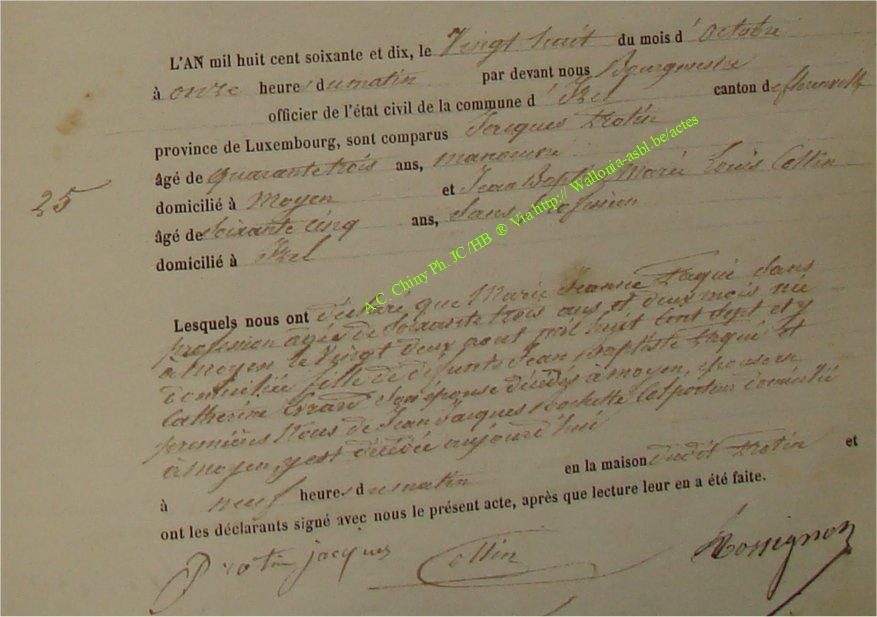 L'AN mil huit cent soixante et dix, le Vingt huit du mois d' Octobre
à onze heures du matin par devant nous Bourgmestre
officier de l'état civil de la commune d' Izel canton de florenville
province de Luxembourg, sont comparus Jacques
âgé de quarante trois ans, manoeuvre
25
domicilié à Moyen et Jean Baptiste Marie Louis Collin
âgé de soixante cinq ans, Sans profession
domicilié à Izel
A.C. Chiny Ph. JC /HB ® Via http:// Wallonia-asbl.be/actes
Lesquels nous ont déclaré que Marie Jeanne Laqué Sans
profession agée de soixante trois ans et deux mois née
à Moyen le Vingt deux aout mil huit Cent sept et y
domiciliée fille de défunts Jean Baptiste Laqué et
Catherine Son épouse décédés à moyen, épouse en
premières Noces de Jean Jacques domicilié
à moyen, y est décédée aujourd'hui
à neuf heures du matin en la maison dudit et
ont les déclarants signé avec nous le présent acte, après que lecture leur en a été faite.
jacques Collin Rossignon